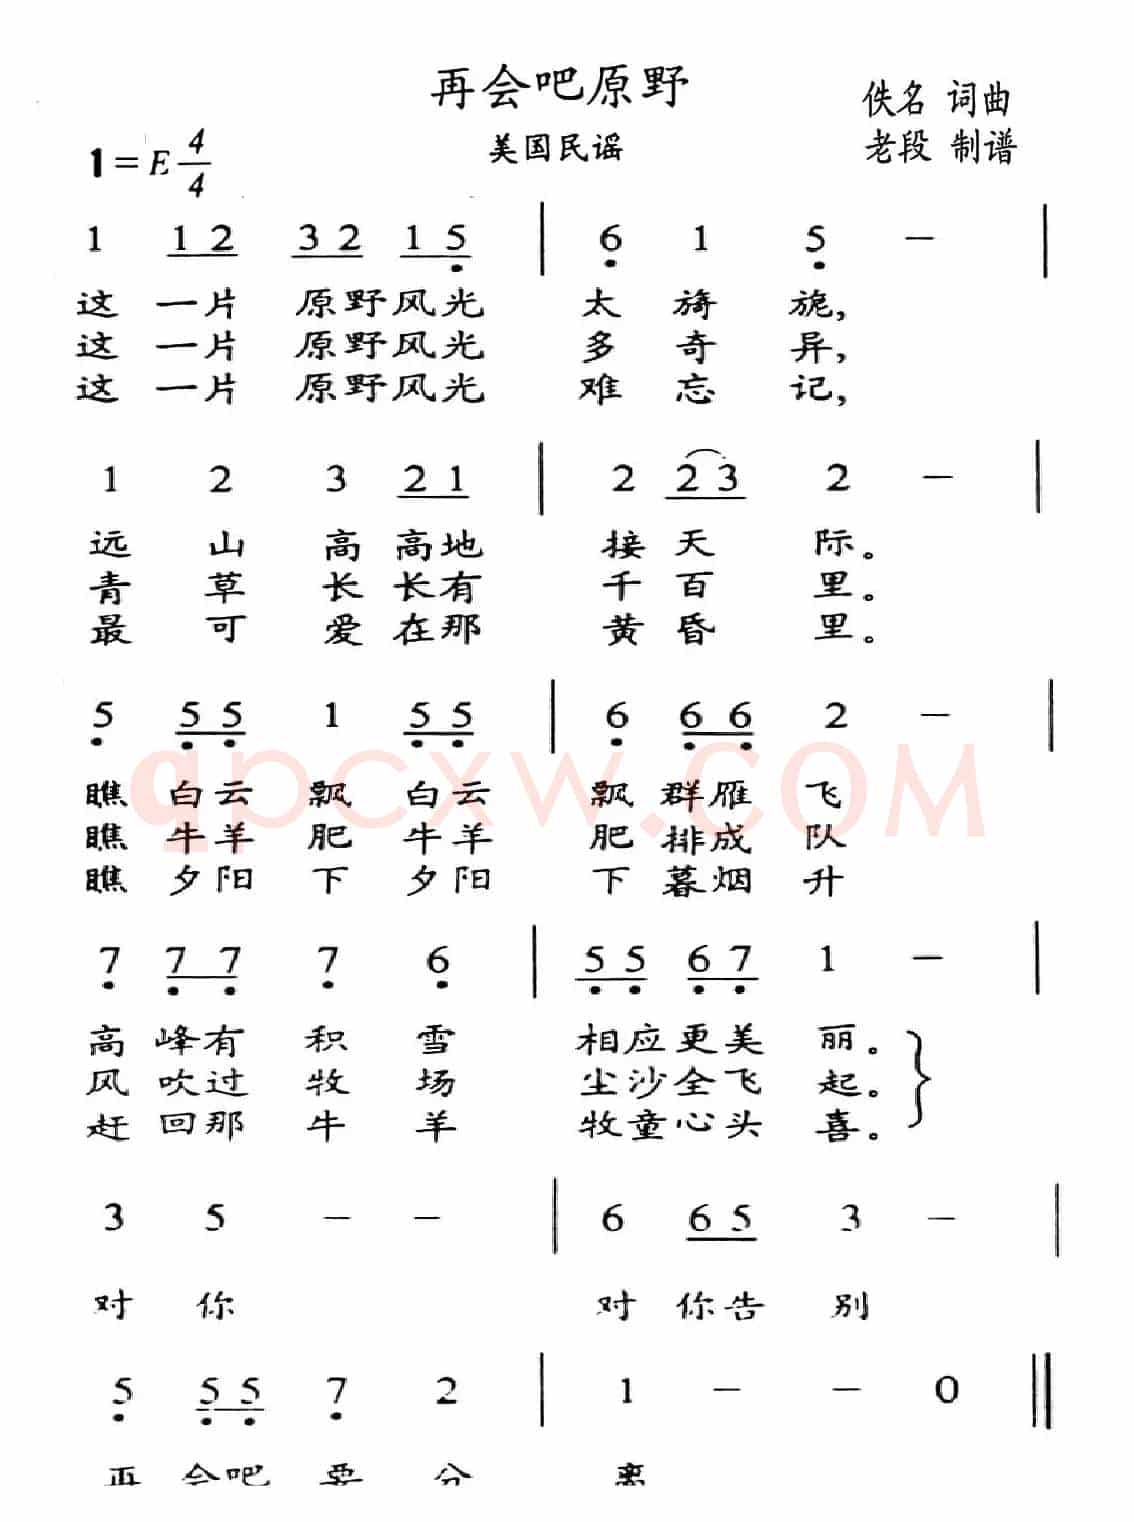 再会吧原野
佚名 词曲
美国民谣
老段 制谱
1=E 4/4
1 1 2 3 2 1 5 | 6 1 5 － |
这 一片 原野风光 太 旖 旎,
这 一片 原野风光 多 奇 异,
这 一片 原野风光 难 忘 记,
1 2 3 2 1 | 2 2 3 2 － |
远 山 高 高地 接 天 际。
青 草 长 长有 千 百 里。
最 可 爱 在那 黄 昏 里。
5 5 5 1 5 5 | 6 6 6 2 － |
瞧 白云 飘 白云 飘 群雁 飞
瞧 牛羊 肥 牛羊 肥 排成 队
瞧 夕阳 下 夕阳 下 暮烟 升
7 7 7 7 6 | 5 5 6 7 1 － |
高 峰有 积 雪 相应更美 丽。
风 吹过 牧 场 尘沙全飞 起。
赶 回那 牛 羊 牧童心头 喜。
3 5 － － | 6 6 5 3 － |
对 你 对 你告 别
5 5 5 7 2 | 1 － － 0 ||
再 会吧 要 分 离
qpcxw.COM